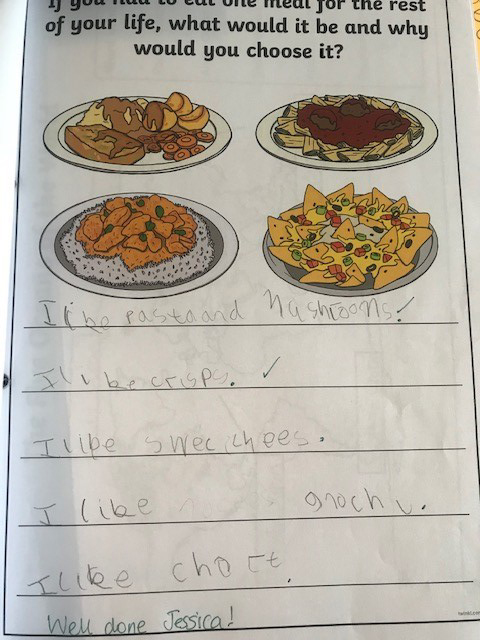 If you had to eat one meal for the rest
of your life, what would it be and why
would you choose it?
I like pasta and
I like crisps.
I like
I like
I like
Well done Jessica!